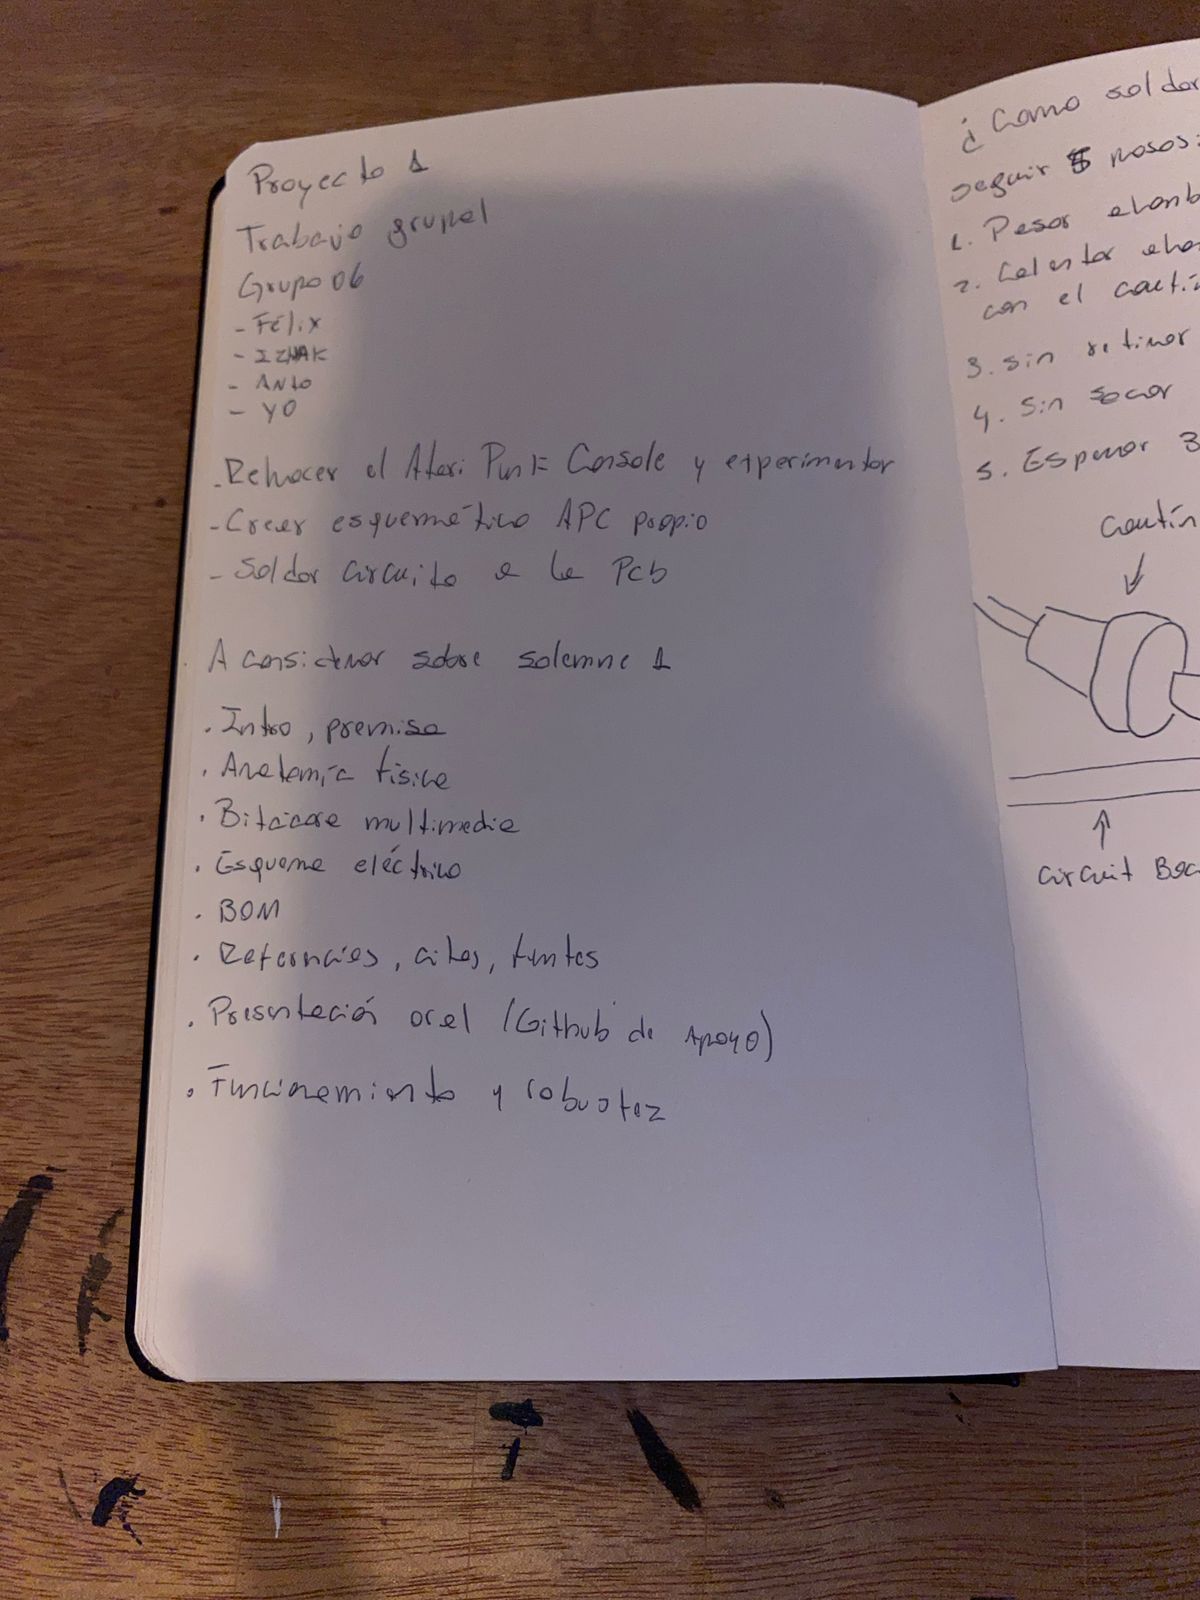 Proyecto 1
Trabajo grupal
Grupo 06
- Félix
- IZHAK
- ANTO
- YO
- Rehacer el Atari Punk Console y experimentar
- Crear esquemático APC propio
- Soldar circuito a la Pcb
A considerar sobre solemne 1
· Intro, premisa
· Anatomía física
· Bitácora multimedia
· Esquema eléctrico
· BOM
· Referncias, citas, funtes
· Presentación oral (Github de APOYO)
· Funcionamiento y robustez
¿Como soldar
seguir 5 pasos:
1. Pesar
2. Calentar
con el cautín
3. sin retirar
4. Sin sacar
5. Esperar 3
Cautín
circuit